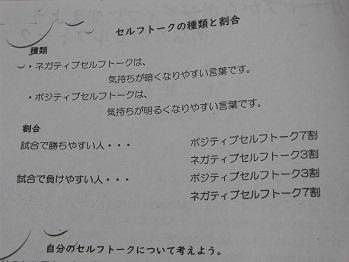 セルフトークの種類と割合
種類
・ネガティブセルフトークは、
気持ちが暗くなりやすい言葉です。
・ポジティブセルフトークは、
気持ちが明るくなりやすい言葉です。
割合
試合で勝ちやすい人・・・ ポジティブセルフトーク7割
ネガティブセルフトーク3割
試合で負けやすい人・・・ ポジティブセルフトーク3割
ネガティブセルフトーク7割
自分のセルフトークについて考えよう。